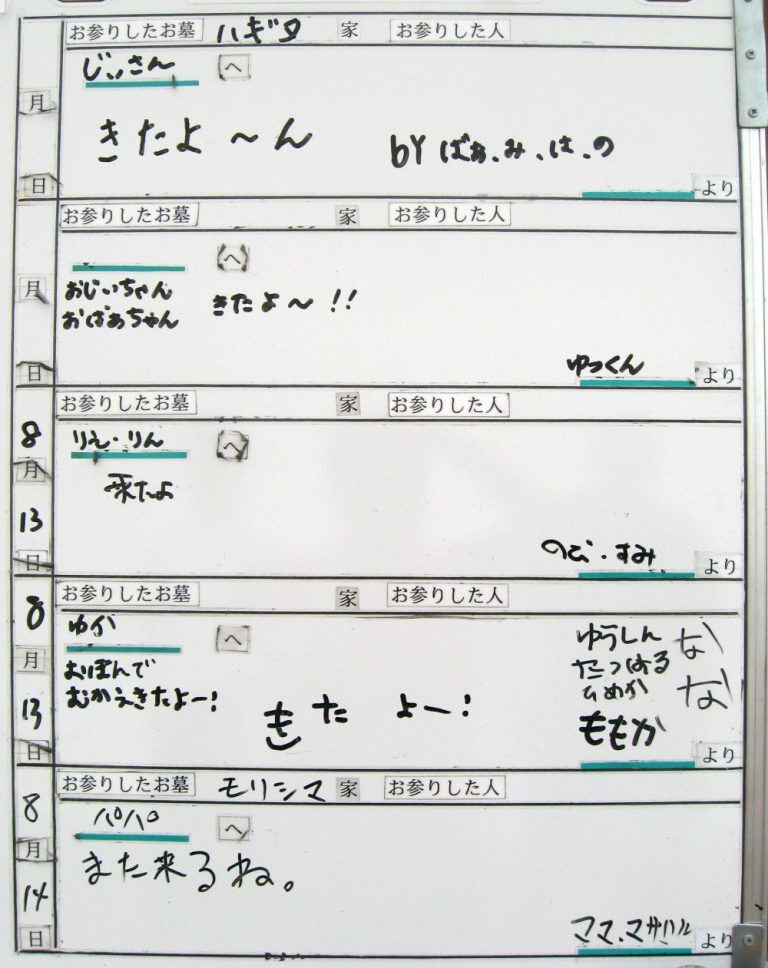 お参りしたお墓 ハギタ 家 お参りした人
じぃさん へ
月
きたよ～ん bY ばぁ.み.は.の
日 より
お参りしたお墓 家 お参りした人
へ
月 おじいちゃん きたよ～!!
おばあちゃん
ゆっくん
日 より
お参りしたお墓 家 お参りした人
8 りえ・りん へ
月 来たよ
13
のび・すみ
日 より
お参りしたお墓 家 お参りした人
8 ゆか へ ゆうしん な
月 おぼんで たつはる
むかえきたよー! ひめか な
13 きた よー! ももか
日 より
お参りしたお墓 モリシマ 家 お参りした人
8 パパ へ
月 また来るね。
14
ママ.マサハル
日 より